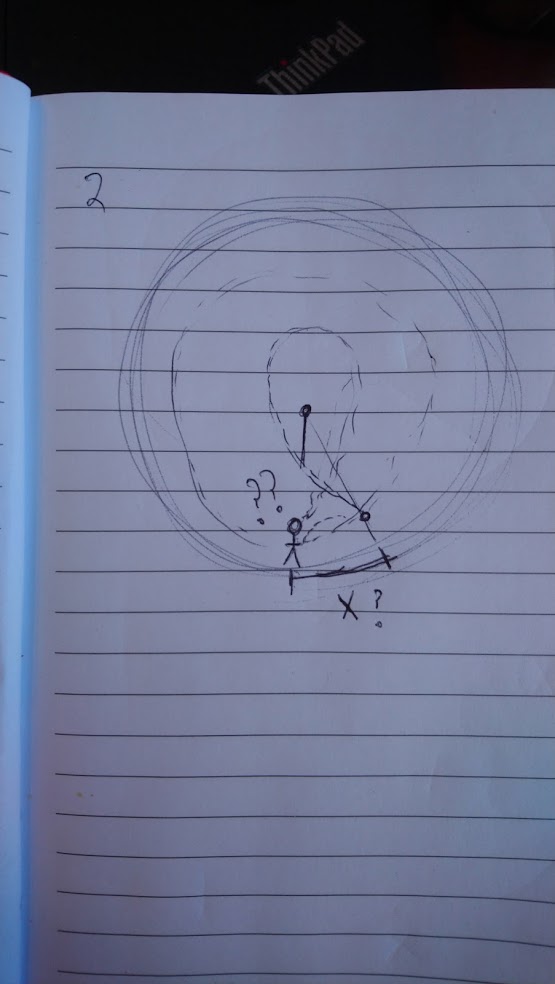 ThinkPad
2
??
X ?